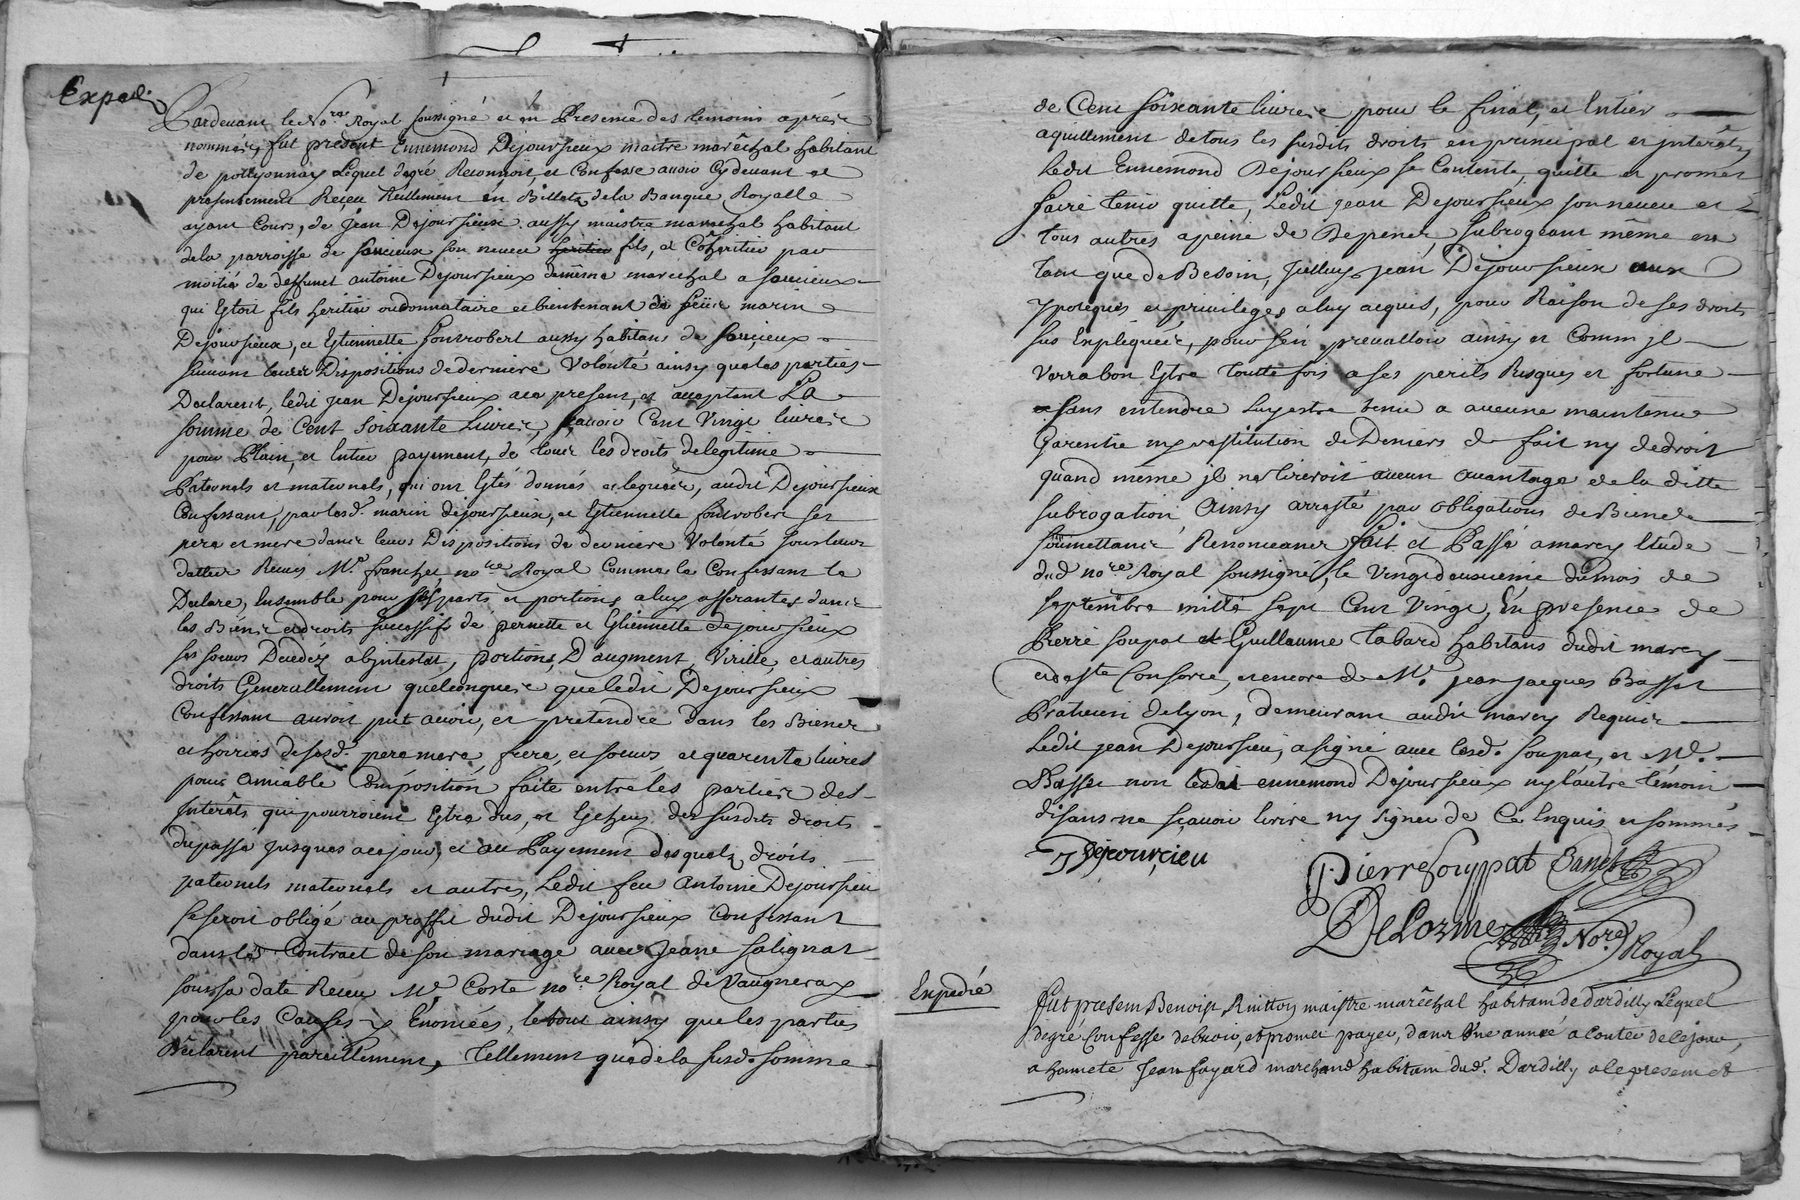 Expedié
Pardevant le No.re Royal soussigné et en Presence des temoins aprés
nommés, fut présent Ennemond Dejoursieux maitre maréchal habitant
de pollyonnay Lequel degré Reconnoit, et Confesse avoir Cydevant et
presentement Receu Réellement en Billets de la Banque Royalle
ayant Cours, de Jean Dejoursieux aussy maistre marechal habitant
de la parroisse de soucieux son neveu fils, et Cohéritier par
moitié de deffunct antoine Dejoursieux demême marechal a soucieux
qui Estoit fils heritier ou donnataire et bientenant de feüe marin
Dejoursieux, et Estiennette fontrobert aussy habitans de soucieux
suivant leurs Dispositions de derniere Volonté ainsy que les parties
Declarent, ledit jean Dejoursieux icy present, et acceptant La
somme de Cent soixante Livres, sçavoir Cent Vingt livres
pour Plain, et Entier payement, de tous les droits delegitime
Paternels et maternels, qui ont Estés donnés et legués, audit Dejoursieux
Confessant, par lesd. marin dejoursieux, et Estiennette fontrobert ses
pere et mere dans leurs Dispositions de derniere Volonté sous leurs
dattes Receus M.e franchet no.re Royal Comme le Confessant le
Declare, Ensemble pour ses parts et portions a luy afferantes dans
les Biens et droits successifs de pernette et Estiennette Dejoursieux
ses soeurs Decedez abintestat, portions D'augment, Virille, et autres
droits Generallement quelconques que ledit Dejoursieux
Confessant auroit put avoir, et pretendre dans les Biens
et hoiries de sesd. pere mere, frere, et soeurs, et quarente livres
pour amiable Composition faite entre les parties des
Interêts qui pourroient Estre dus, et Echeus des susdits droits
du passé jusques a ce jour, et au Payement desquels droits
paternels maternels et autres, Ledit feu Antoine Dejoursieu
se seroit obligé au proffit dudit Dejoursieux Confessant
dans le Contract de son mariage avec Jeane salignat
sous sa date Receu M.e Coste no.re Royal de Vaugneray
pour les Causes y Enoncées, le tout ainsy que les parties
Declarent pareillement, Tellement que de la susd. somme
de Cent soixante livres pour le final, et Entier
aquittement de tous les susdits droits en principal et interêts,
Ledit Ennemond Dejoursieux se Contente, quitte et promet
faire tenir quitte, Ledit jean Dejoursieux son neveu et
tous autres a peine de Depens, subrogeant même en
tant que de Besoin, Jcelluy jean Dejoursieux aux
ypoteques et privileges a luy acquis, pour Raison de ses droits
sus Expliqués, pour s'en prevalloir ainsy et Comme jl
Verra bon Estre toutte fois a ses perils Risques et fortune
sans entendre luy estre tenu a aucune maintenue
Garentie ny restitution de Deniers de fait ny de droit
quand même jl ne tireroit aucun avantage de la ditte
subrogation, Ainsy arresté par obligations de Biens
soûmettans Renonceans fait et Passé a marcy Etude
dud. no.re Royal soussigné, le Vingt deuxieme du mois de
septembre mille sept Cent Vingt, En presence de
Pierre soupat et Guillaume Tabard habitans dudit marcy
et de ste Consorce, et encore de M.e jean jacques Basset
Praticien de lyon, demeurant audit marcy Requis
Ledit jean Dejoursieu, a signé avec lesd. soupat, et M.e
Basset non ledit ennemond Dejoursieux ny l'autre témoin
disans ne sçavoir Ecrire ny signer de Ce Enquis et sommés
J Dejourcieu
Pierre Souppat Basset
DeLorme No.re Royal
Expedié
fut present Benoist maistre maréchal habitant de dardilly Lequel
degré Confesse debvoir, et promet payer, dans Une année a Conter de ce jour,
a honnete Jean fayard marchand habitant dud. Dardilly a le present et